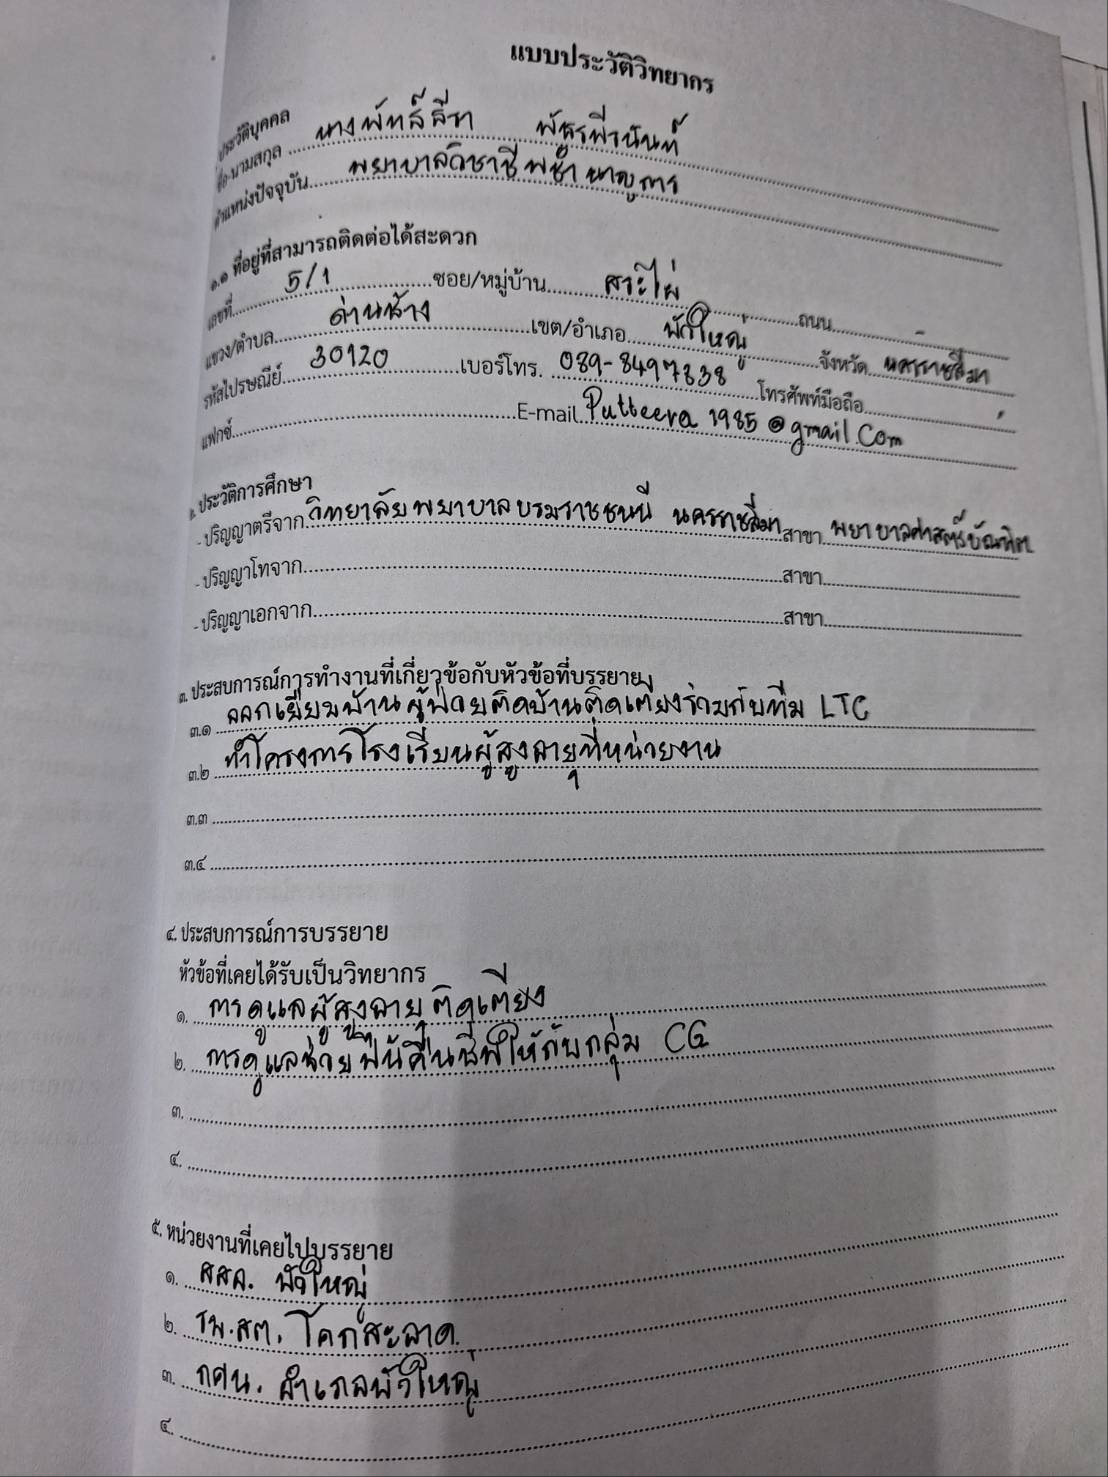 แบบประวัติวิทยากร
ประวัติบุคคล
ชื่อ-นามสกุล นางพัทส์ลีชา พัฐรพีรนันท์
ตำแหน่งปัจจุบัน พยาบาลวิชาชีพชำนาญการ
๑.๑ ที่อยู่ที่สามารถติดต่อได้สะดวก
เลขที่ 5/1 ซอย/หมู่บ้าน สระไผ่ ถนน
แขวง/ตำบล ด่านช้าง เขต/อำเภอ บัวใหญ่ จังหวัด นครราชสีมา
รหัสไปรษณีย์ 30120 เบอร์โทร. 089-8497838 โทรศัพท์มือถือ
แฟกซ์ E-mail Putteera1985@gmail.com
๒. ประวัติการศึกษา
- ปริญญาตรีจาก วิทยาลัยพยาบาลบรมราชชนนี นครราชสีมา สาขา พยาบาลศาสตร์บัณฑิต
- ปริญญาโทจาก สาขา
- ปริญญาเอกจาก สาขา
๓. ประสบการณ์การทำงานที่เกี่ยวข้อกับหัวข้อที่บรรยาย
๓.๑ ออกเยี่ยมบ้านผู้ป่วยติดบ้านติดเตียงร่วมกับทีม LTC
๓.๒ ทำโครงการโรงเรียนผู้สูงอายุที่หน่วยงาน
๓.๓
๓.๔
๔. ประสบการณ์การบรรยาย
หัวข้อที่เคยได้รับเป็นวิทยากร
๑. การดูแลผู้สูงอายุติดเตียง
๒. การดูแลช่วยฟื้นคืนชีพให้กับกลุ่ม CG
๓.
๔.
๕. หน่วยงานที่เคยไปบรรยาย
๑. สสอ. บัวใหญ่
๒. รพ.สต. โคกสะอาด
๓. กศน. อำเภอบัวใหญ่
๔.